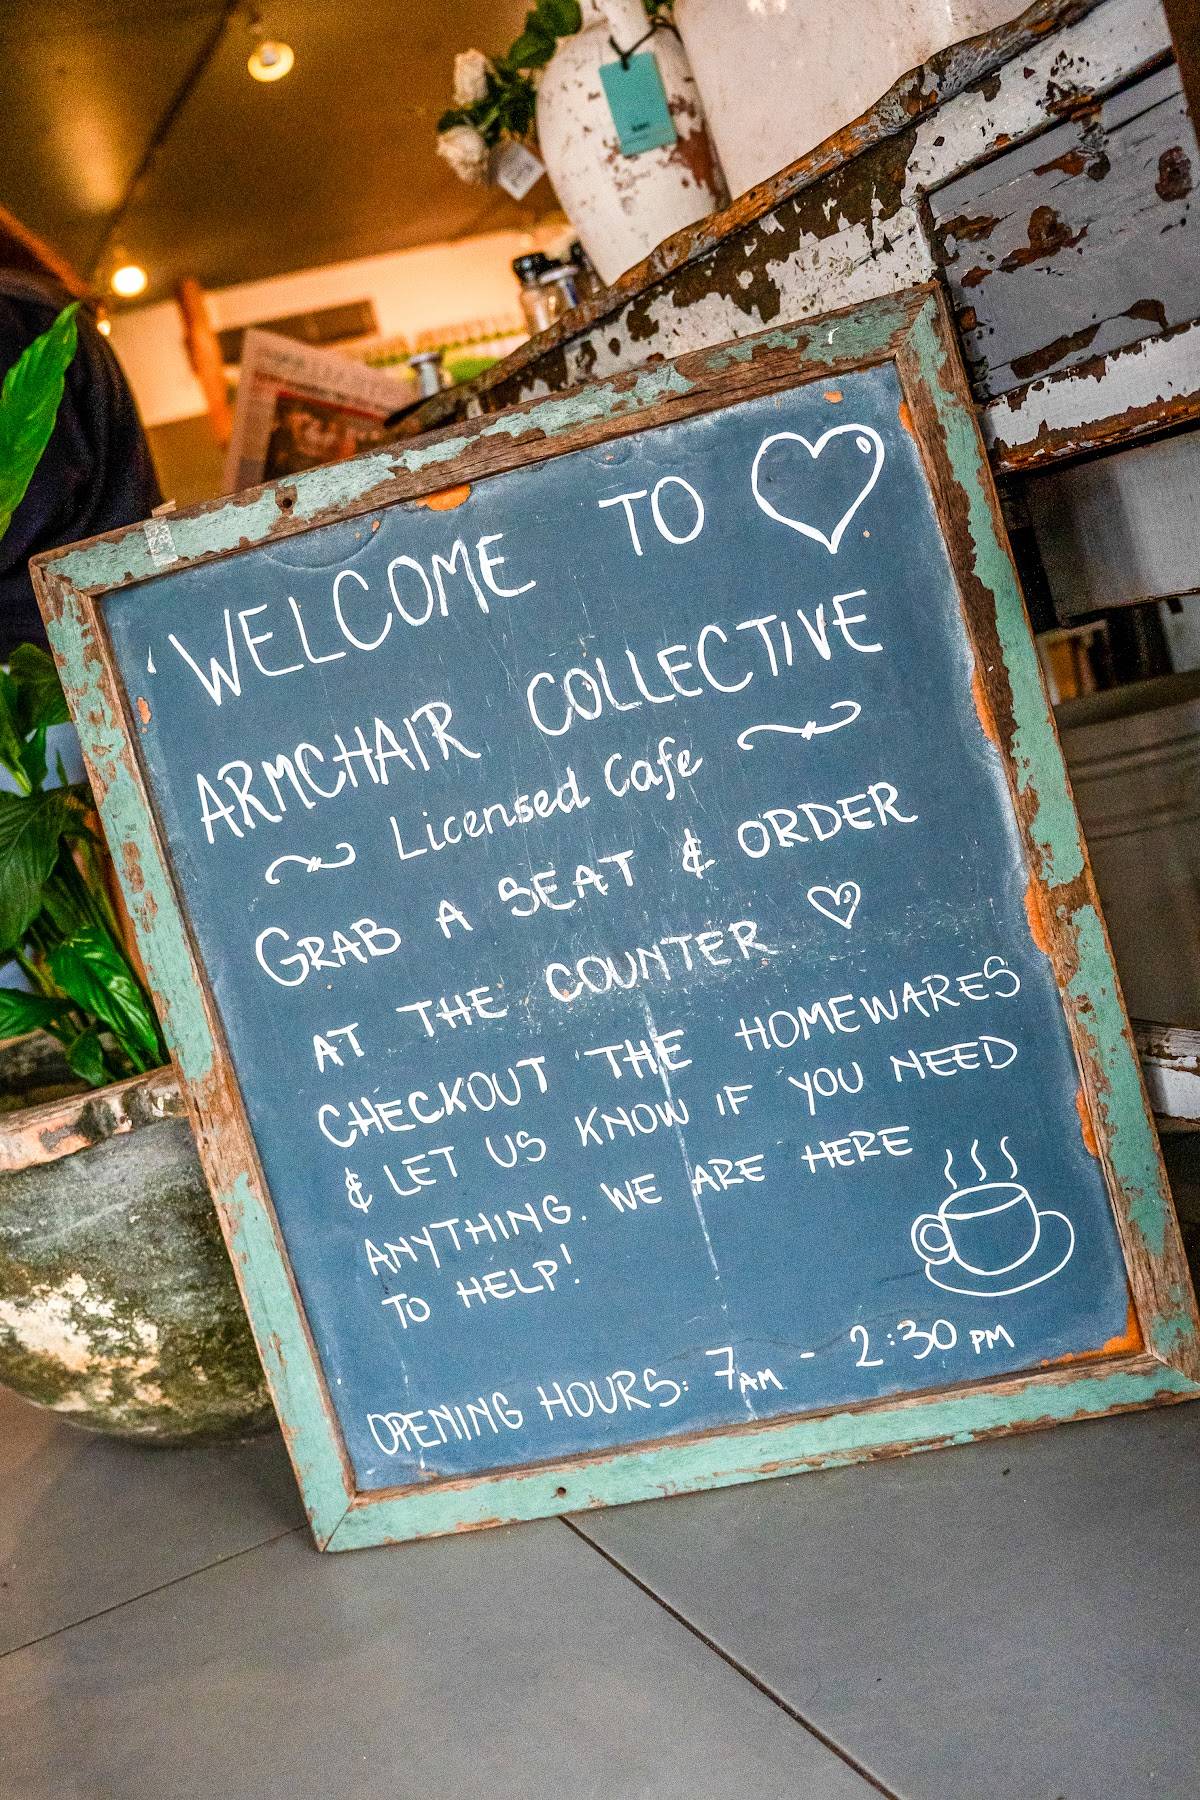 WELCOME TO
ARMCHAIR COLLECTIVE
Licensed Cafe
GRAB A SEAT & ORDER
AT THE COUNTER
CHECKOUT THE HOMEWARES
& LET US KNOW IF YOU NEED
ANYTHING. WE ARE HERE
TO HELP!
OPENING HOURS: 7AM - 2:30 PM